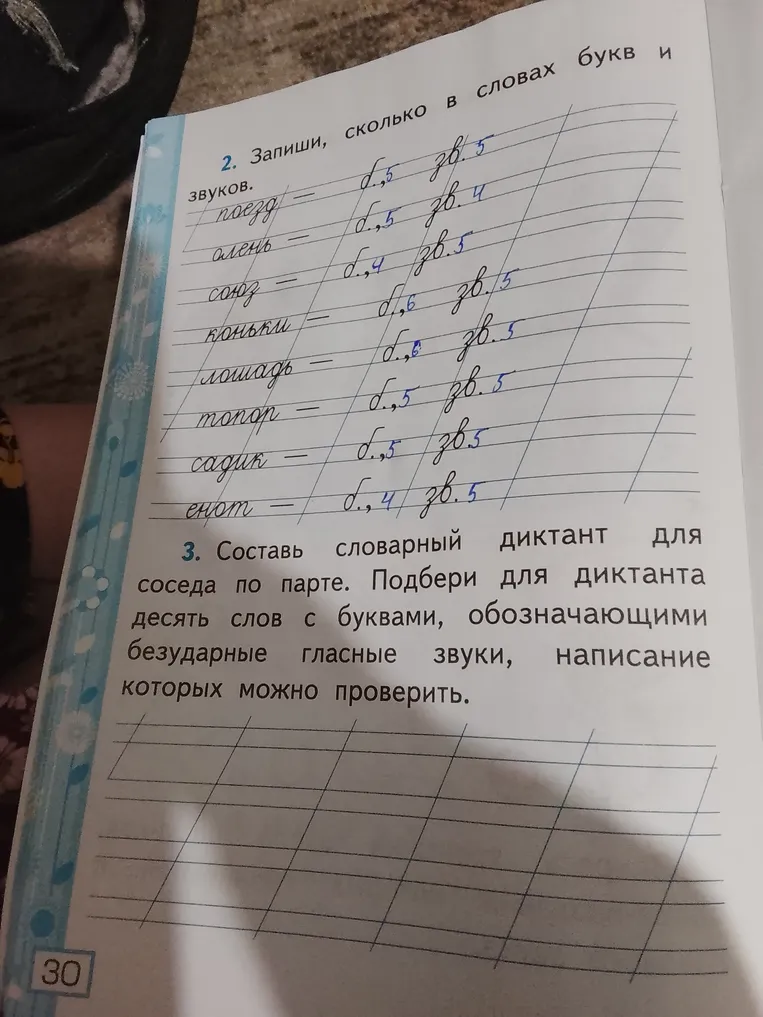 2. Запиши, сколько в словах букв и
звуков.
поезд — б., 5 зв. 5
олень — б., 5 зв. 4
союз — б., 4 зв. 5
коньки — б., 6 зв. 5
лошадь — б., 6 зв. 5
топор — б., 5 зв. 5
садик — б., 5 зв. 5
енот — б., 4 зв. 5
3. Составь словарный диктант для
соседа по парте. Подбери для диктанта
десять слов с буквами, обозначающими
безударные гласные звуки, написание
которых можно проверить.
30